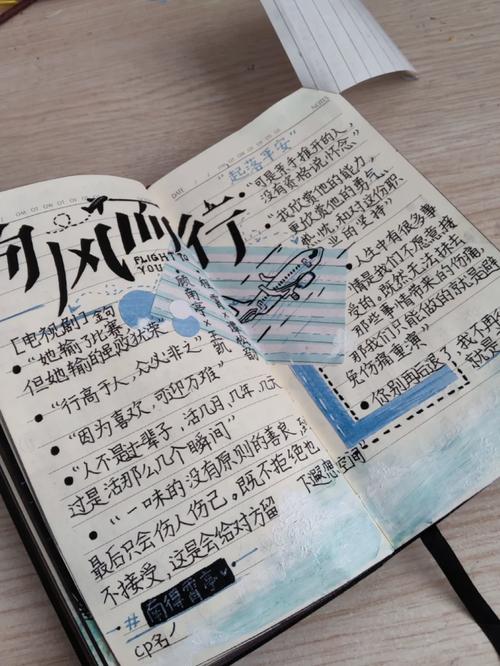 向风而行
FLIGHT TO
YOU
[电视剧]金句
“她输了比赛
但她输的
“行高于人，众必非之”
“因为喜欢，可迎万难”
“人不是活一辈子，活几月，几年，几天
过是活那么几个瞬间”
“一味的没有原则的善良，
最后只会伤人伤己。既不拒绝也
不接受，这是会给对方留
下遐想空间”
#南得霄亭
CP名
DATE
NOTES
“起落平安”
“可是亲手推开的人，
没有资格说‘怀念’”
“我欣赏他的能力，
更欣赏他的勇气，
和对这份职
业的坚持”
“人生中有很多事
情是我们不愿意接
受的。既然无法抹去
那些事情带来的伤痛，
那我们只能做的就是避
免伤痛重演”
“你别再后退了，我不再